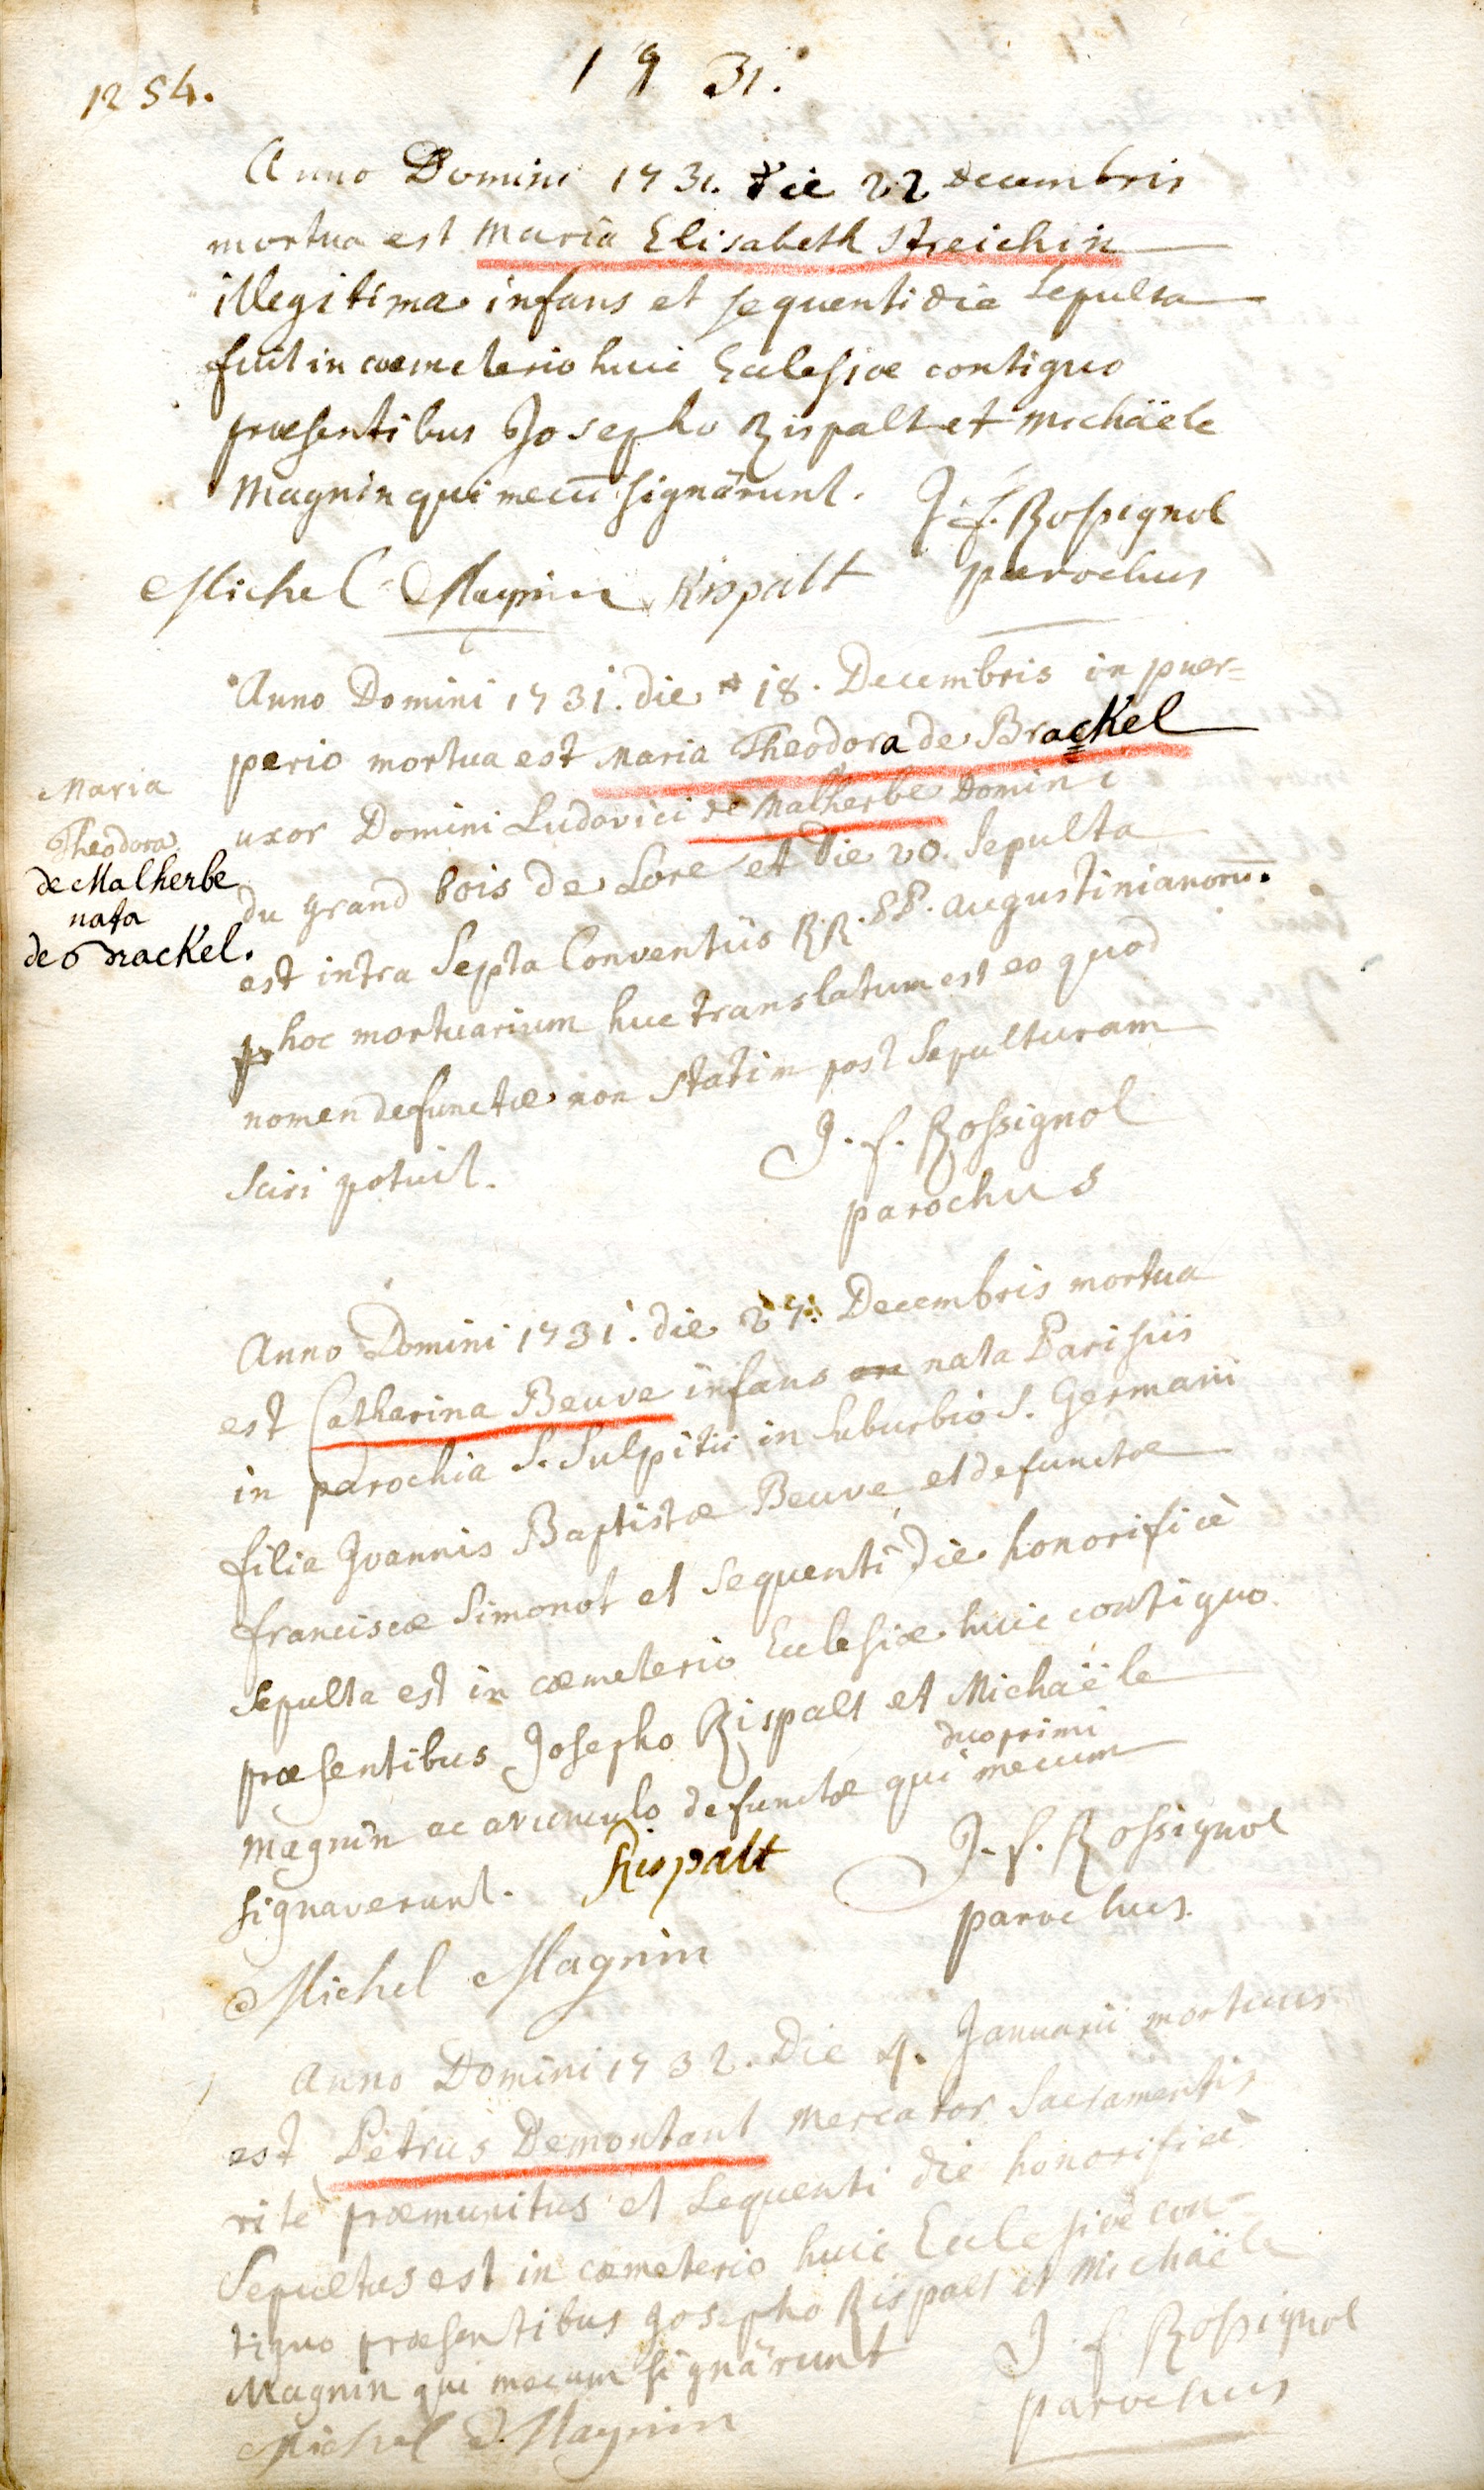 1254.
1731.
Anno Domini 1731. die 22 Decembris
mortua est Maria Elisabeth Streichin
illegitima infans et sequenti die sepulta
fuit in coemeterio huic Ecclesiæ contiguo
præsentibus Josepho Rispalt et Michäele
Magnin qui mecū signârunt. J. f. Rossignol
parochus
Michel Magnin Rispalt
Anno Domini 1731. die 18. Decembris in puer=
perio mortua est Maria Theodora de Brackel
uxor Domini Ludovici de Malherbe Domini
du grand bois de Lore et die 20. Sepulta
est intra Septa Conventûs RR. PP. Augustinianorū.
hoc mortuarium huc translatum est eo quod
nomen defunctæ non statim post Sepulturam
sciri potuit.
J. f. Rossignol
parochus
Maria
Theodora
de Malherbe
nata
de Brackel.
Anno Domini 1731. die 27. Decembris mortua
est Catharina Beuve infans nata Parisiis
in parochia S. Sulpitii in suburbio S. Germani
filia Joannis Baptistæ Beuve et defunctæ
franciscæ Simonot et sequenti die honorificè
sepulta est in coemeterio Ecclesiæ huic contiguo
præsentibus Josepho Rispalt et Michäele
duo primi
Magnin ac avunculo defunctæ qui mecum
signaverunt. Rispalt
J. f. Rossignol
parochus.
Michel Magnin
Anno Domini 1732. Die 4. Januarii mortuus
est Petrus Demontant Mercator Sacramentis
ritè præmunitus et sequenti die honorificè
Sepultus est in coemeterio huic Ecclesiæ con=
tiguo præsentibus Josepho Rispalt et Michäele
Magnin qui mecum signârunt
J f Rossignol
parochus
Michel Magnin